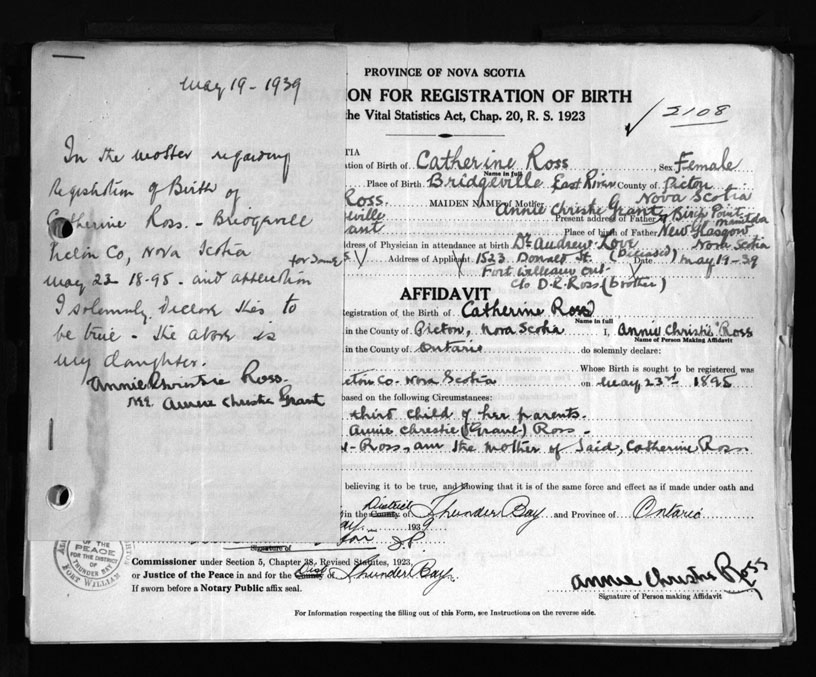 May 19 - 1939
In the matter regarding
Registration of Birth of
Catherine Ross. - Bridgeville
Pictou Co, Nova Scotia
for same
May 23 18-95. and application
I solemnly declare this to
be true - the above is
my daughter.
Annie Christie Ross.
née Annie Christie Grant
PROVINCE OF NOVA SCOTIA
ION FOR REGISTRATION OF BIRTH
the Vital Statistics Act, Chap. 20, R. S. 1923
2108
TIA
ation of Birth of Catherine Ross, Sex Female
Name in full
Place of Birth Bridgeville East River County of Pictou
Nova Scotia
Ross. MAIDEN NAME of Mother Annie Christie Grant
eville Present address of Father Birch Point
Manitoba
ant Place of birth of Father New Glasgow
Nova Scotia
ddress of Physician in attendance at birth Dr Andrew Love (Deceased)
Address of Applicant 1523 Donald St. Date May 19-39
Fort William Ont
c/o D.R. Ross (brother)
AFFIDAVIT
Registration of the Birth of Catherine Ross
Name in full
in the County of Pictou, Nova Scotia I, Annie Christie Ross
Name of Person Making Affidavit
in the County of Ontario do solemnly declare:
Whose Birth is sought to be registered, was
ctou Co. Nova Scotia on May 23rd 1895
based on the following Circumstances:
third child of her parents.
Annie Christie (Grant) Ross -
Ross, am the mother of Said, Catherine Ross.
believing it to be true, and knowing that it is of the same force and effect as if made under oath and
in the County of District Thunder Bay and Province of Ontario
ay. 1939
J.P.
Signature of
Commissioner under Section 5, Chapter 38, Revised Statutes, 1923,
or Justice of the Peace in and for the County Dist of Thunder Bay.
If sworn before a Notary Public affix seal.
OF THE
PEACE
FOR THE DISTRICT
OF
THUNDER BAY
FORT WILLIAM
Annie Christie Ross
Signature of Person making Affidavit
For Information respecting the filling out of this Form, see Instructions on the reverse side.